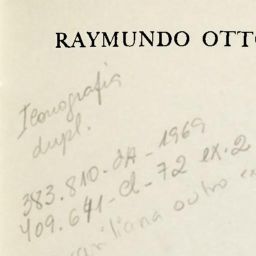 RAYMUNDO OTT
Iconografia
dupl.
383.810-dA-1969
409.641-cl-72 ex.2
outro